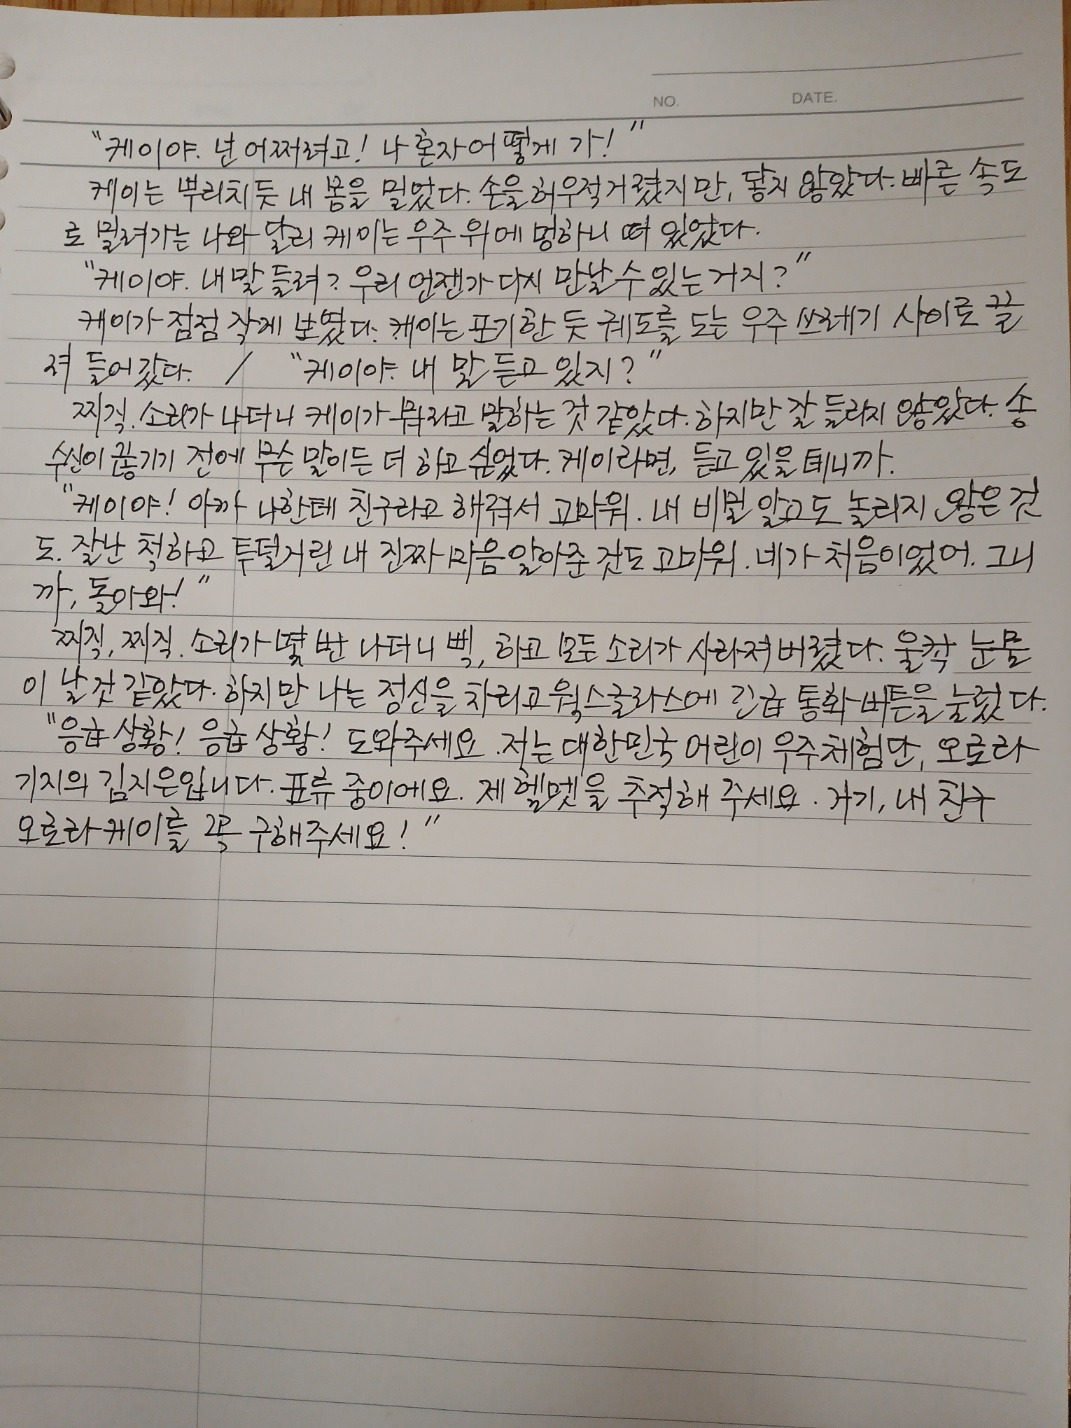 NO. DATE.
"케이야. 넌 어쩌려고! 나 혼자 어떻게 가!"
케이는 뿌리치듯 내 몸을 밀었다. 손을 허우적거렸지만, 닿지 않았다. 빠른 속도
로 밀려가는 나와 달리 케이는 우주 위에 멍하니 떠 있었다.
"케이야. 내 말 들려? 우리 언젠가 다시 만날 수 있는 거지?"
케이가 점점 작게 보였다. 케이는 포기한 듯 궤도를 도는 우주 쓰레기 사이로 끌
려 들어갔다. / "케이야. 내 말 듣고 있지?"
찌직. 소리가 나더니 케이가 뭐라고 말하는 것 같았다. 하지만 잘 들리지 않았다. 송
수신이 끊기기 전에 무슨 말이든 더 하고 싶었다. 케이라면, 듣고 있을 테니까.
"케이야! 아까 나한테 친구라고 해줘서 고마워. 내 비밀 알고도 놀리지 않은 것
도. 잘난 척하고 투덜거린 내 진짜 마음 알아준 것도 고마워. 네가 처음이었어. 그니
까, 돌아와!"
찌직, 찌직. 소리가 몇 번 나더니 삑, 하고 모든 소리가 사라져 버렸다. 울컥 눈물
이 날 것 같았다. 하지만 나는 정신을 차리고 웍스글라스에 긴급 통화 버튼을 눌렀다.
"응급 상황! 응급 상황! 도와주세요. 저는 대한민국 어린이 우주체험단, 오로라
기지의 김지은입니다. 표류 중이에요. 제 헬멧을 추적해 주세요. 거기, 내 친구
오로라 케이를 꼭 구해주세요!"